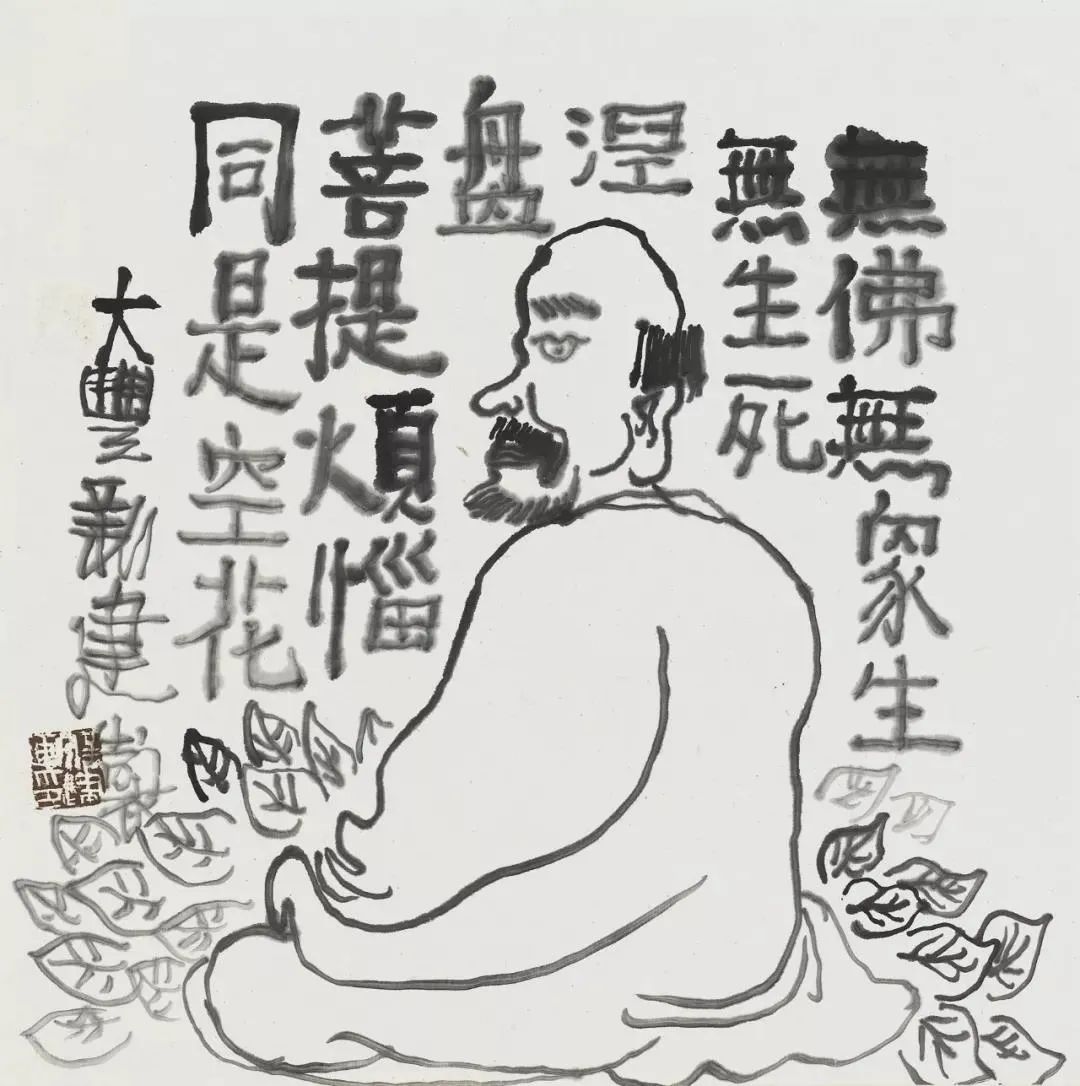 無佛無眾生
無生死
涅
盘
菩提煩惱
同是空花
大豐新建寫